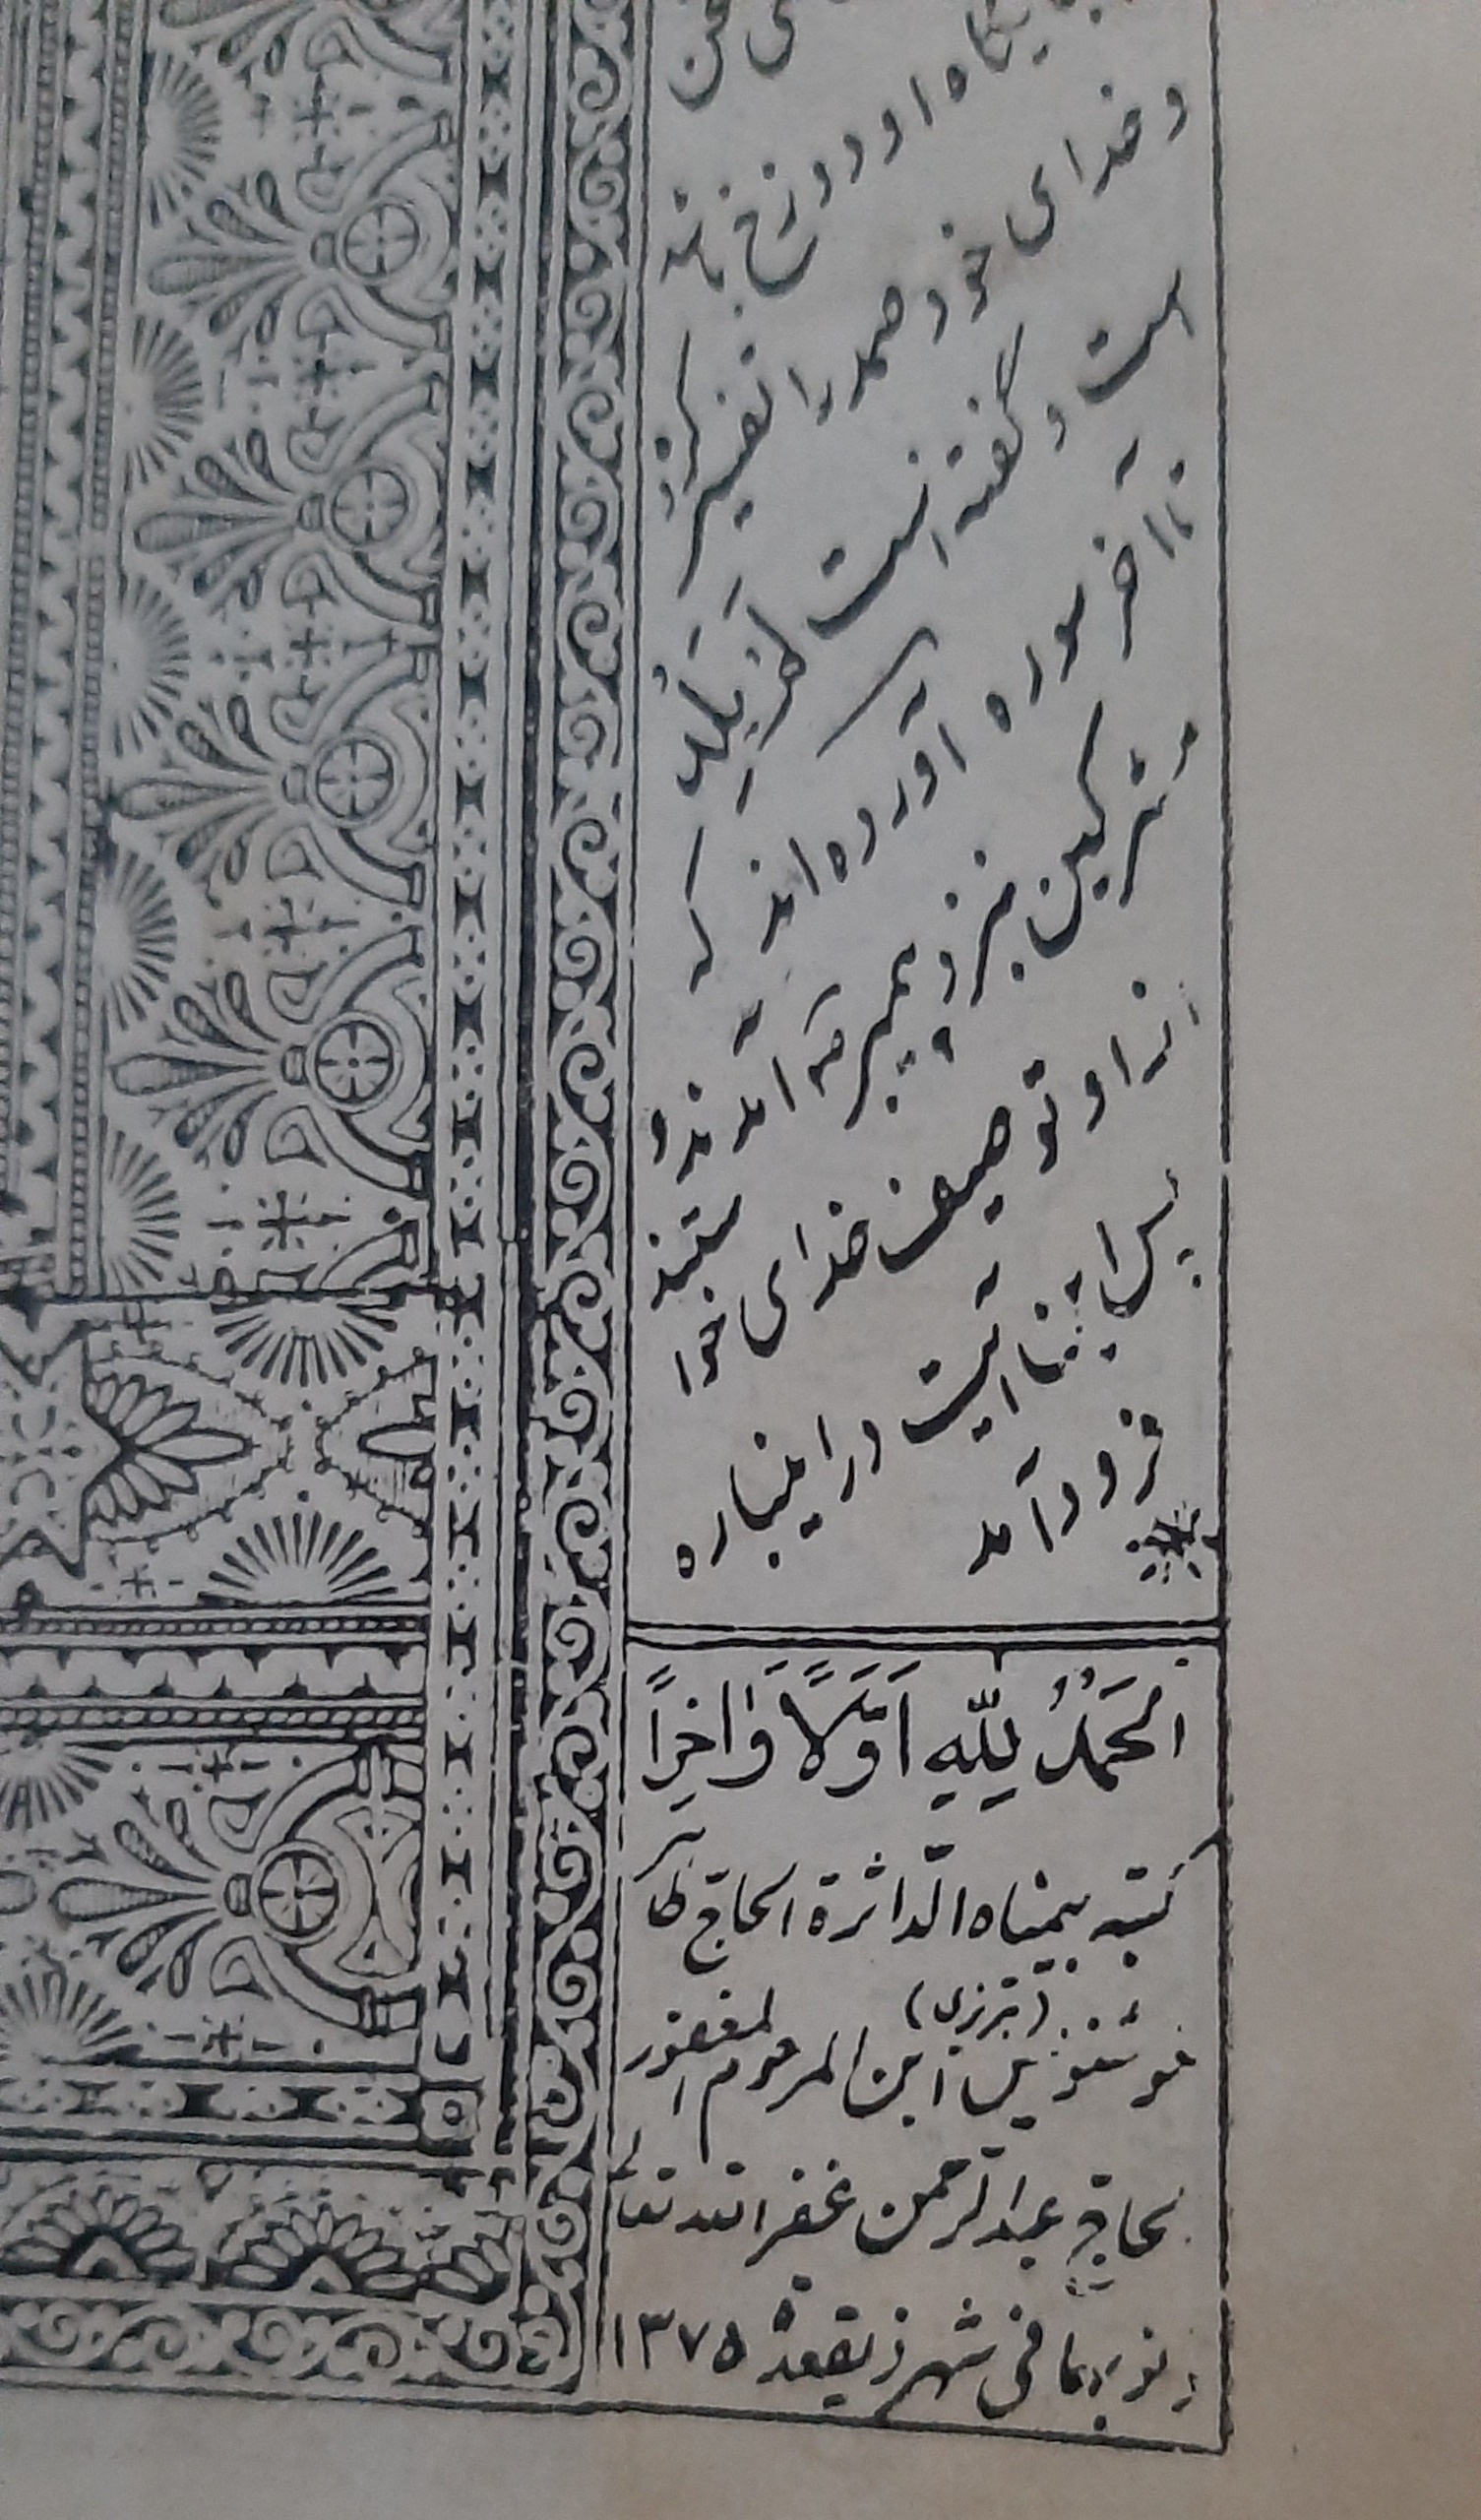 جایگاه او دوزخ باشد
و خدای خود صمد را تفسیر کرده
است و گفته است لَم یَلِد
تا آخر سوره آورده‌اند که
مشرکین نزد پیغمبر ص آمدند و
از او توصیف خدای خوا ستند
پس این آیت در اینباره
فرود آمد
اَلحَمدُ لِلّهِ اَوَّلاً وَاخِراً
کتبه بیمناه الداثرة الحاج طاهر
خوشنویس (تبریزی) ابن المرحوم المغفور
الحاج عبدالرحمن غفر الله تعالی
ذنوبهما فی شهر ذیقعدة ۱۳۷۵